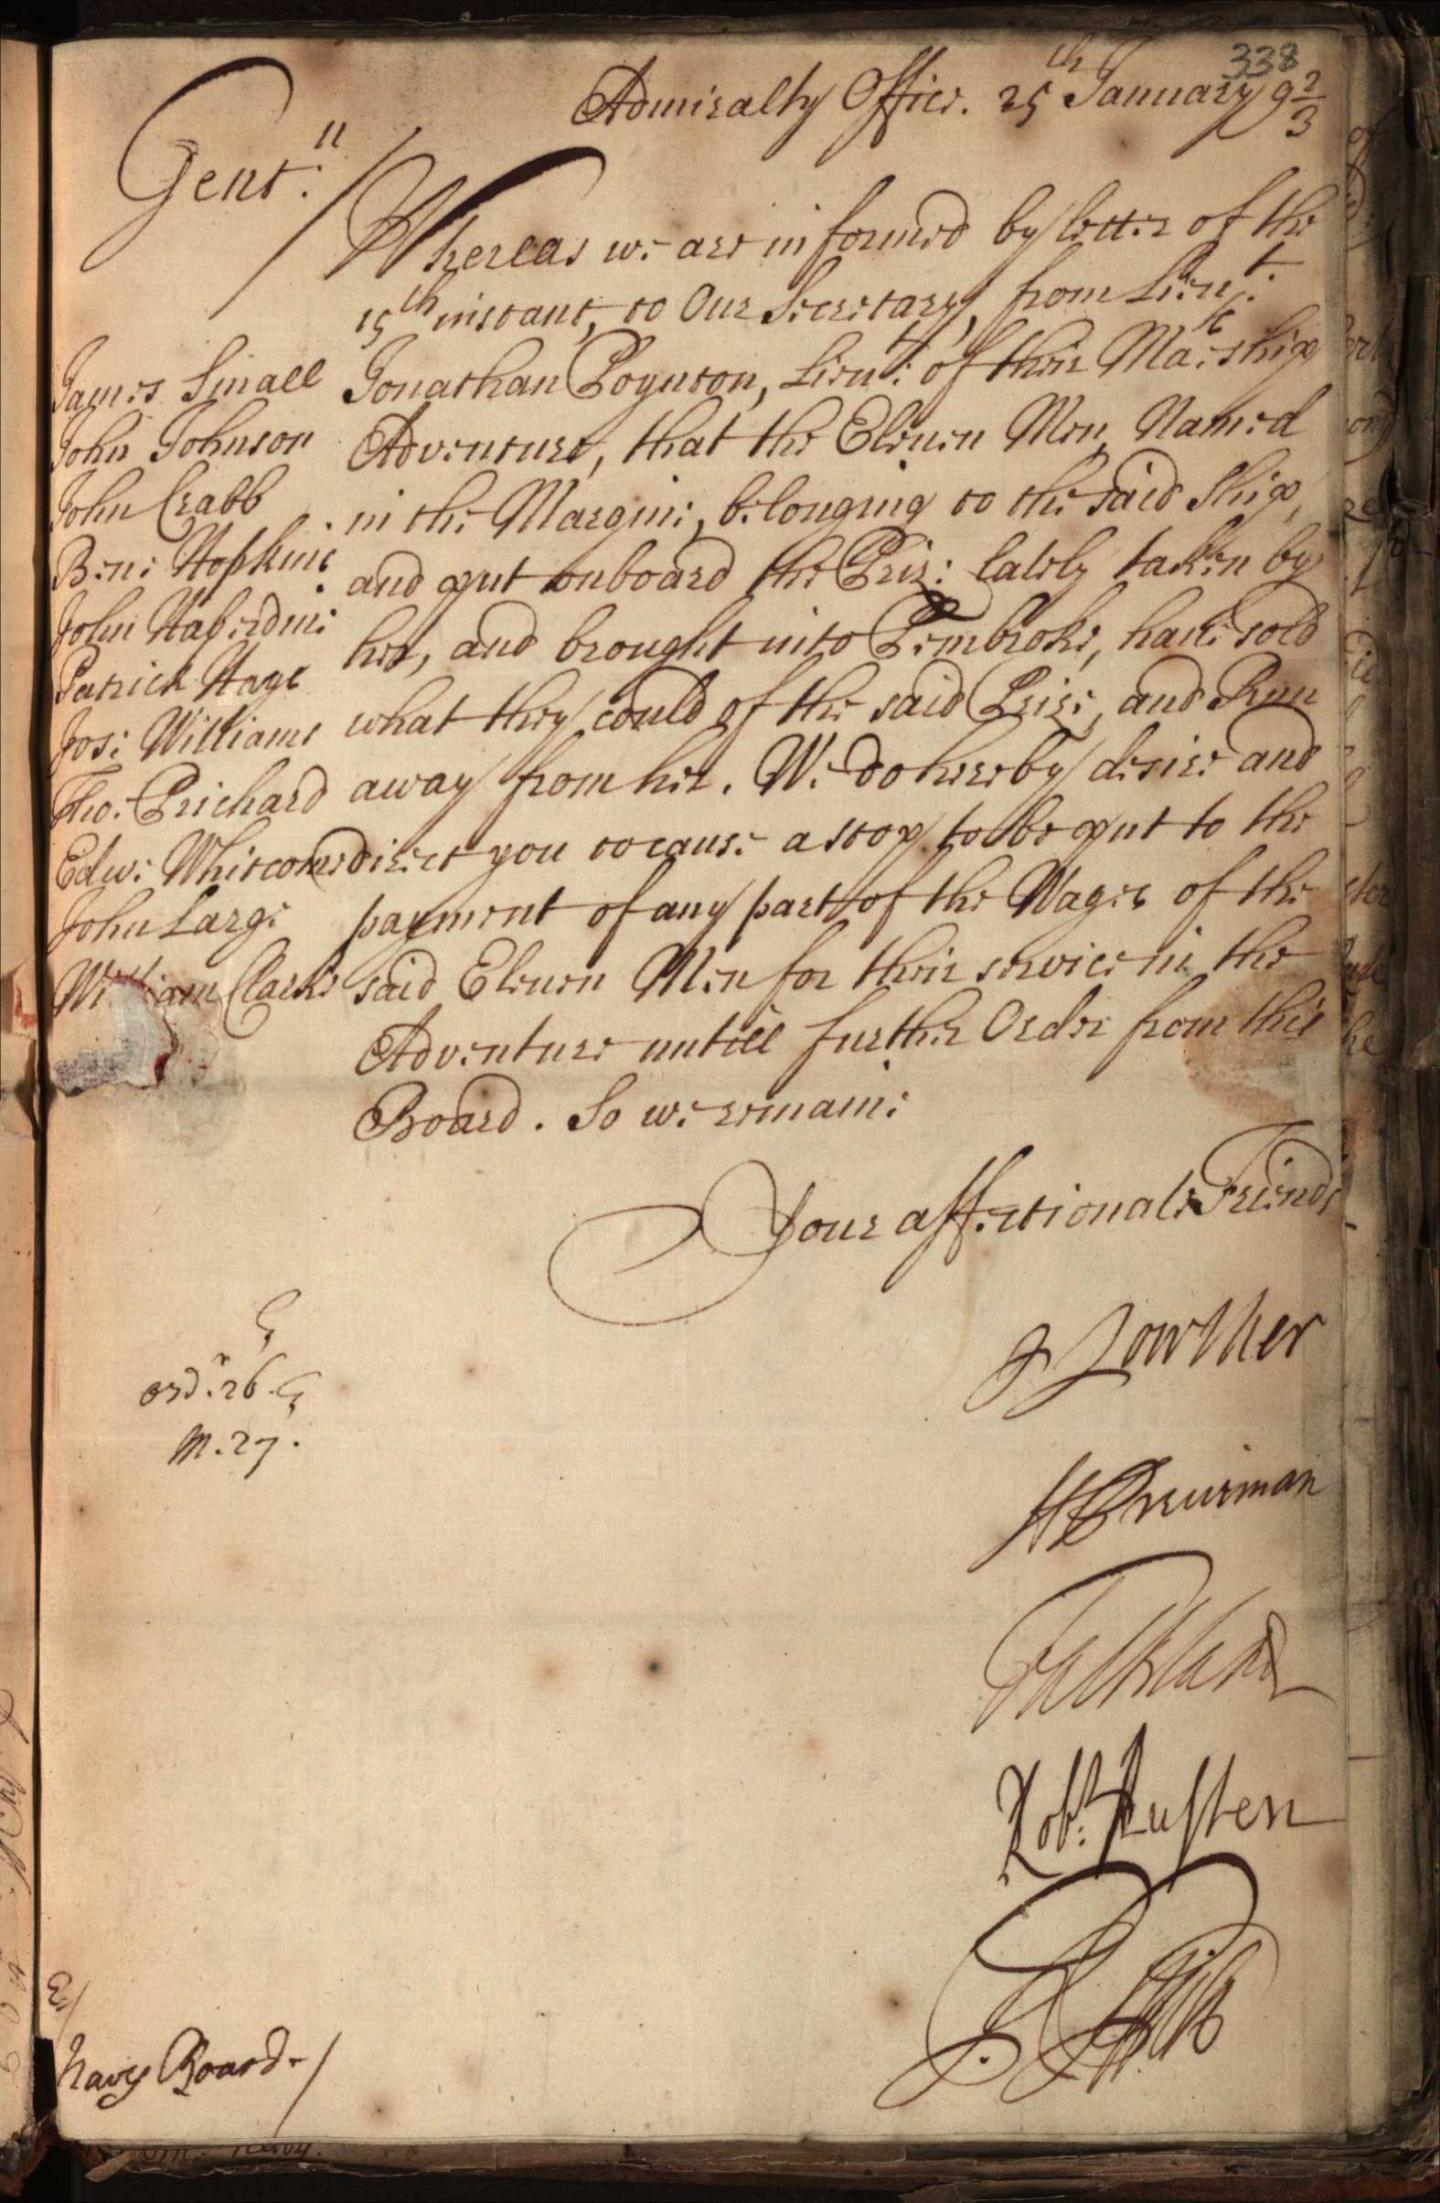 338
Admiralty Office. 25th January 92/3
Gent:n
Whereas we are informed by letter of the
15th instant, to Our Secretary, from Lieut.
Jonathan Poynton, Lieut: of their Mats: ship
Adventure, that the Eleven Men Named
in the Margine, belonging to the said Ship,
and put onboard the Prize lately taken by
her, and brought into Pembroke, have sold
what they could of the said Prize, and Run
away from her. We do hereby desire and
direct you to cause a stop to be put to the
payment of any part of the Wages of the
said Eleven Men for their service in the
Adventure untill further Order from this
Board. So we remaine
James Small
John Johnson
John Crabb
Ben: Hopkins
John
Patrick Hays
Jos: Williams
Tho: Prichard
Edw: Whitcome
John Large
William Clarke
Your affectionate Friends
J Lowther
H Priestman
Falkland
Robt: Austen
ord.r 26.
M. 27.
Navy Board